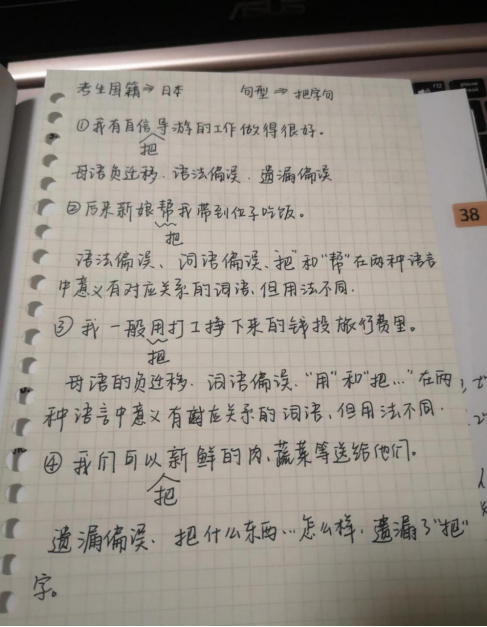 考生国籍⇒日本 句型⇒把字句
①我有自信导游的工作做得很好。
把
母语负迁移、语法偏误、遗漏偏误
②后来新娘帮我带到位子吃饭。
把
语法偏误、词语偏误、"把"和"帮"在两种语言
中意义有对应关系的词语,但用法不同.
③我一般用打工挣下来的钱投旅行费里。
把
母语的负迁移、词语偏误、"用"和"把…"在两
种语言中意义有对应关系的词语、但用法不同.
④我们可以新鲜的肉、蔬菜等送给他们。
把
遗漏偏误、把什么东西…怎么样,遗漏了"把"
字。
38
ASUS